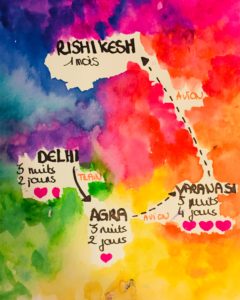 RISHIKESH
1 mois
AVION
DELHI
3 nuits
2 jours
TRAIN
VARANASI
5 nuits
4 jours
AGRA
3 nuits
2 jours
AVION